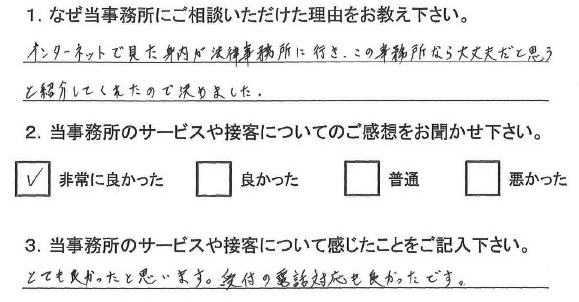 1. なぜ当事務所にご相談いただけた理由をお教え下さい。
インターネットで見た身内が法律事務所に行き、この事務所なら大丈夫だと思う
と紹介してくれたので決めました。
2. 当事務所のサービスや接客についてのご感想をお聞かせ下さい。
✓ 非常に良かった 良かった 普通 悪かった
3. 当事務所のサービスや接客について感じたことをご記入下さい。
とても良かったと思います。受付の電話対応も良かったです。